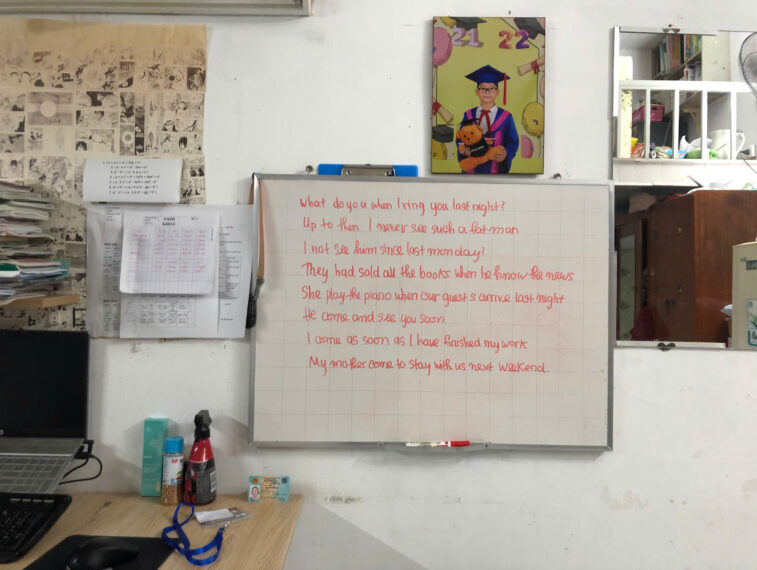 21 22
What do you when I ring you last night?
Up to then I never see such a fat man
I not see him since last monday?
They had sold all the books when he know the news
She play the piano when our guest s arrive last night
He come and see you soon
I come as soon as I have finished my work
My mother come to stay with us next weekend.